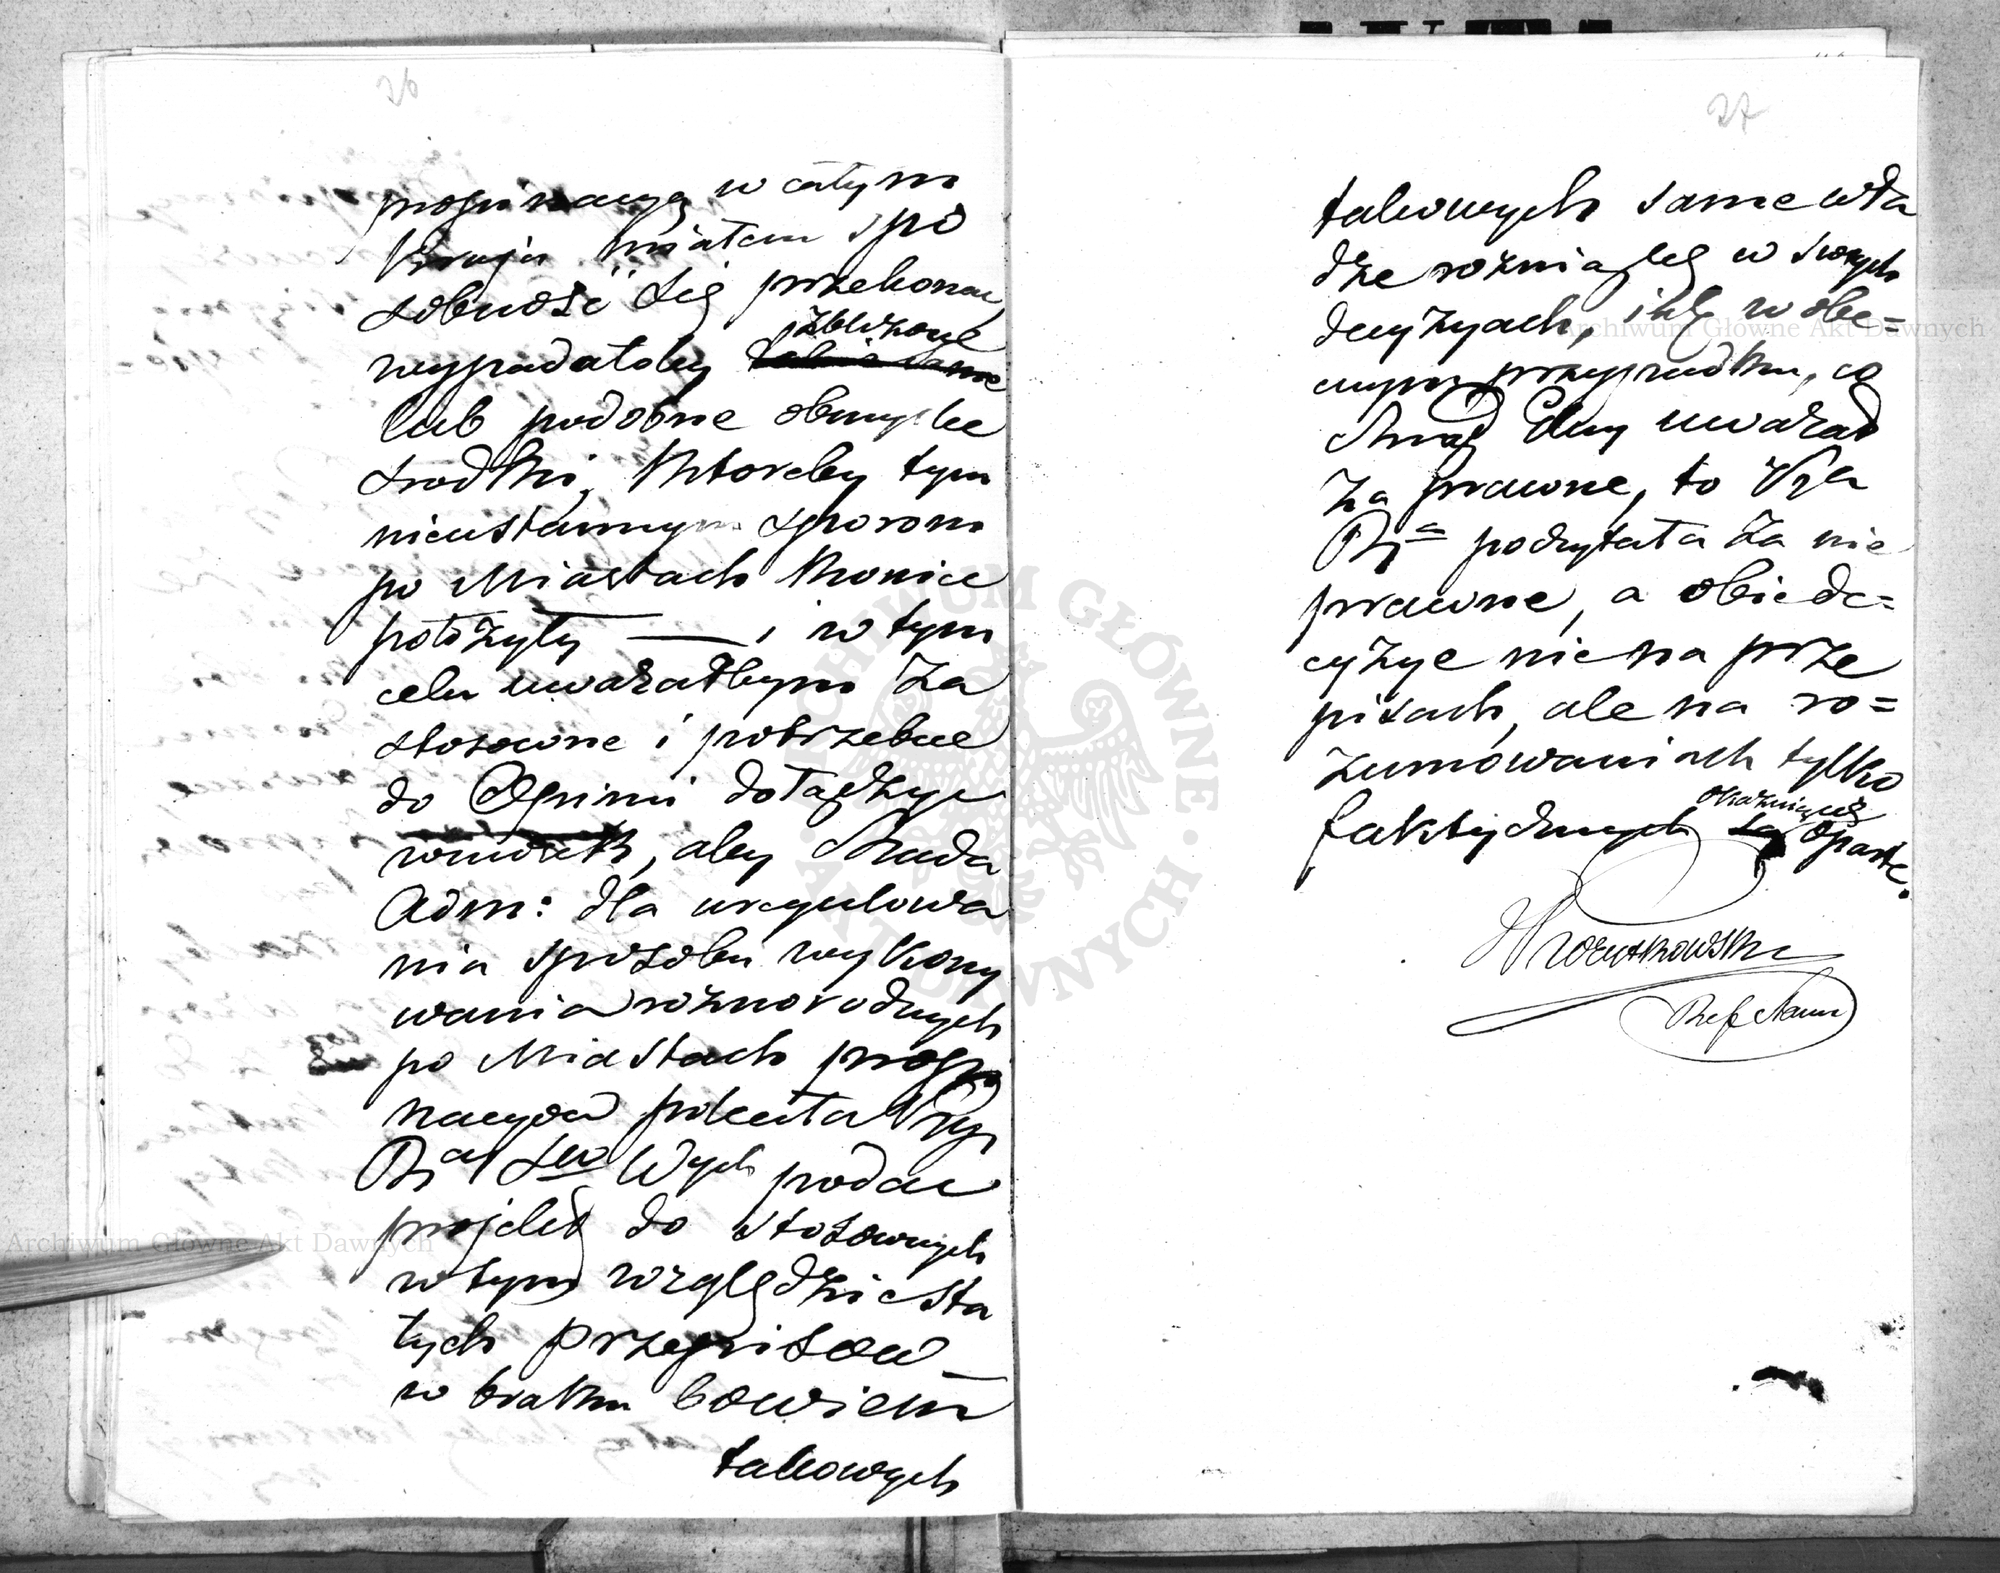 26
propinacyą w całym
Kraju miałem spo
sobność się przekonać
wypadałoby zbliżone
lub podobne obmyśleć
srodki, ktoreby tym
nieustannym sporom
po Miastach koniec
położyły — , i w tym
celu uważałbym za
stosowne i potrzebne
do Opinii dołączyć
wniosek, aby Rada
Adm: dla uregulowa
nia sposobu wykony
wania roznorodnych
po Miastach propi
nacyów poleciła
Wych podać
projekt do stosownych
w tym względzie sta
łych przepisów
w braku bowiem
takowych
27
takowych same wła
dze rożnią się w swych
decyzyach, i tak w obe=
cnym przypadku, co
Urząd uważał
za prawne, to
poczytała za nie
prawne, a obie de=
cyzye nie na prze
pisach, ale na ro=
zumowaniach tylko
faktycznych oparte.
Ref Stanu
Archiwum Główne Akt Dawnych
Archiwum Główne Akt Dawnych
ARCHIWUM GŁÓWNE · AKT DAWNYCH ·